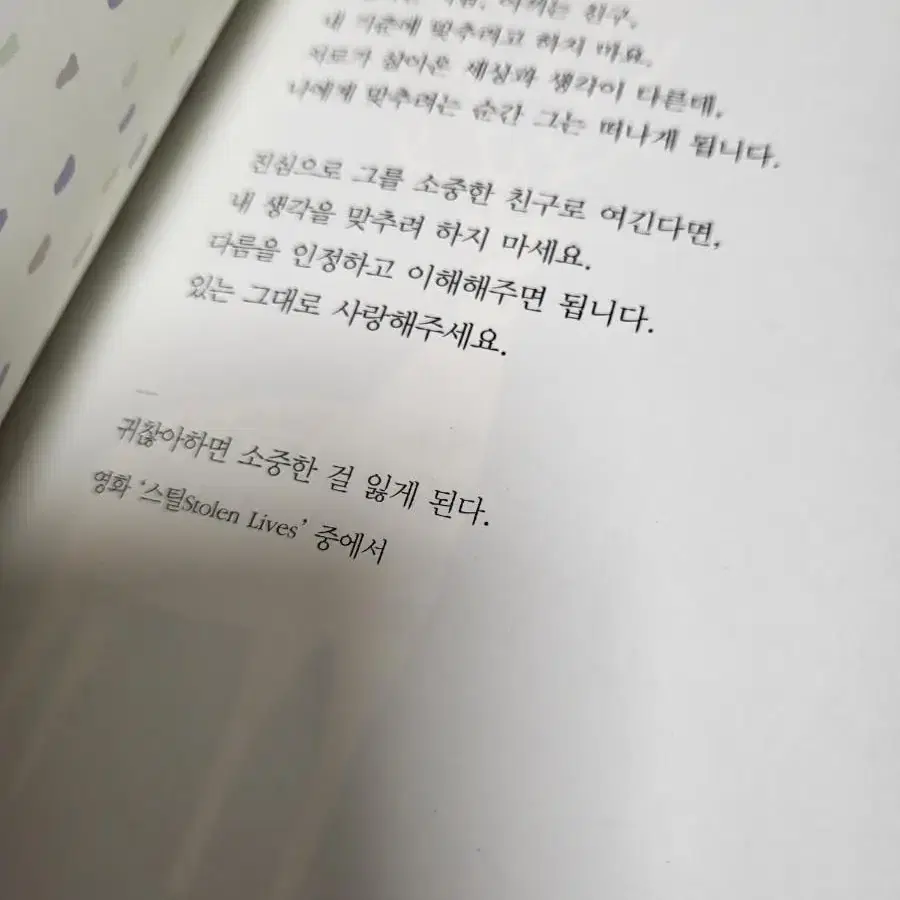 친구,
내 기준에 맞추려고 하지 마요.
서로가 살아온 세상과 생각이 다른데,
나에게 맞추려는 순간 그는 떠나게 됩니다.
진심으로 그를 소중한 친구로 여긴다면,
내 생각을 맞추려 하지 마세요.
다름을 인정하고 이해해주면 됩니다.
있는 그대로 사랑해주세요.
귀찮아하면 소중한 걸 잃게 된다.
영화 ‘스틸Stolen Lives’ 중에서